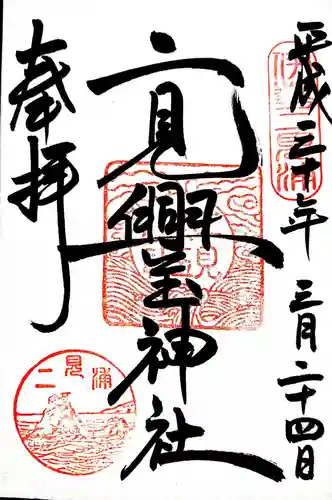 伊勢二見浦
平成三十年三月二十四日
二見興玉神社
奉拝
二見浦